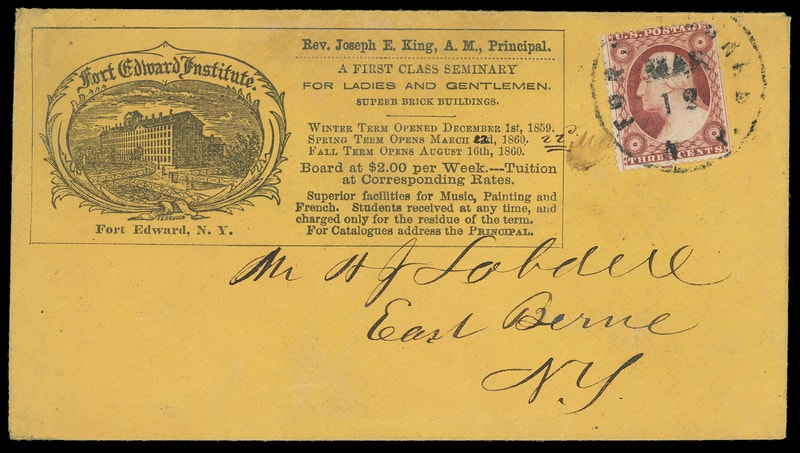 Fort Edward Institute.
FERGUSON
Fort Edward, N. Y.
Rev. Joseph E. King, A. M., Principal.
A FIRST CLASS SEMINARY
FOR LADIES AND GENTLEMEN.
SUPERB BRICK BUILDINGS.
WINTER TERM OPENED DECEMBER 1st, 1859.
SPRING TERM OPENS MARCH 22d, 1860. 22
FALL TERM OPENS AUGUST 16th, 1860.
Board at $2.00 per Week.---Tuition
at Corresponding Rates.
Superior facilities for Music, Painting and
French. Students received at any time, and
charged only for the residue of the term.
For Catalogues address the PRINCIPAL.
U.S. POSTAGE
THREE CENTS
MAR
12
Mr H J Lobdell
East Berne
N.Y.